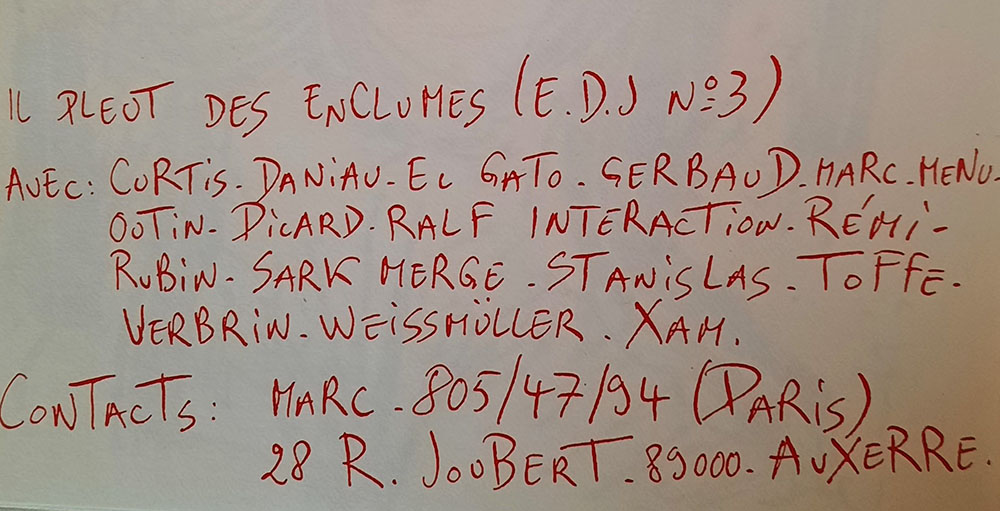 IL PLEUT DES ENCLUMES (E.D.J Nº3)
AVEC: CURTiS. DANiAU. EL GATO. GERBAUD. MARC. MENU.
OOTiN. DiCARD. RALF INTERACTiON. RÉMi.
RUBiN. SARK MERGE. STANiSLAS. TOFFE.
VERBRiN. WEiSSMÜLLER. XAM.
CONTACTS: MARC. 805/47/94 (PARiS)
28 R. JOUBERT. 89000. AUXERRE.